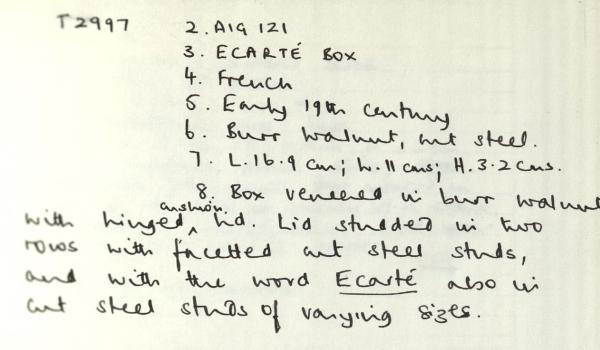 T2997 2. A19 121
3. ECARTÉ BOX
4. French
5. Early 19th century
6. Burr walnut, cut steel.
7. L.16.9 cm; W.11 cms; H.3.2 cms.
8. Box veneered in burr walnut
with hinged cushion lid. Lid studded in two
rows with facetted cut steel studs,
and with the word Ecarté also in
cut steel studs of varying sizes.